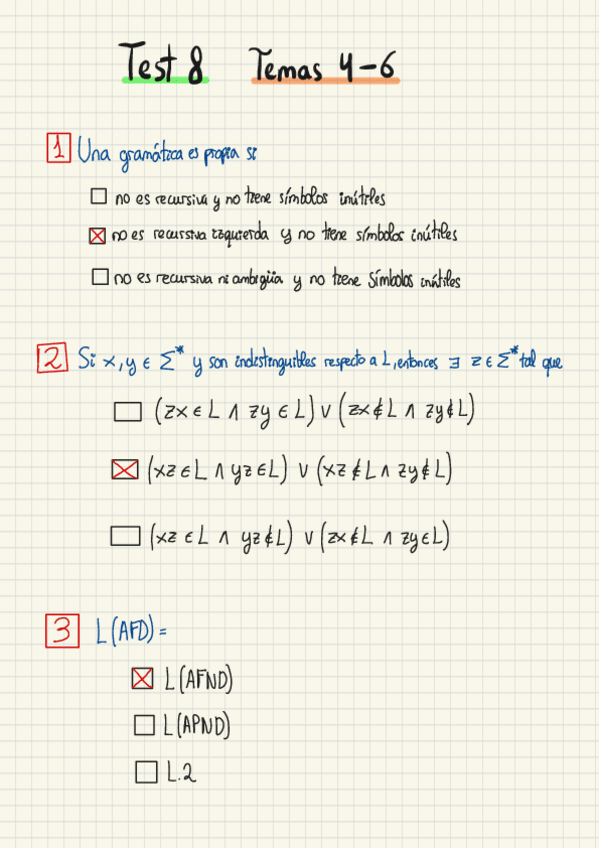 Test 8 Temas 4-6
1 Una gramática es propia si
no es recursiva y no tiene símbolos inútiles
no es recursiva izquierda y no tiene símbolos inútiles
no es recursiva ni ambigüa y no tiene símbolos inútiles
2 Si x, y ∈ Σ* y son indistinguibles respecto a L, entonces ∃ z ∈ Σ* tal que
(zx ∈ L ∧ zy ∈ L) ∨ (zx ∉ L ∧ zy ∉ L)
(xz ∈ L ∧ yz ∈ L) ∨ (xz ∉ L ∧ zy ∉ L)
(xz ∈ L ∧ yz ∉ L) ∨ (zx ∉ L ∧ zy ∈ L)
3 L(AFD) =
L(AFND)
L(APND)
L.2